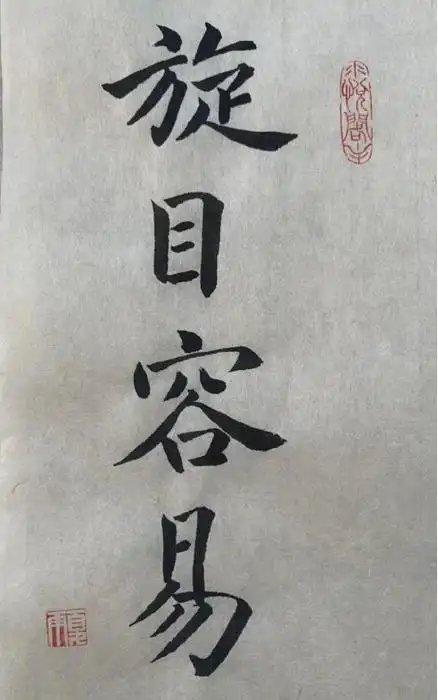 旋目容易